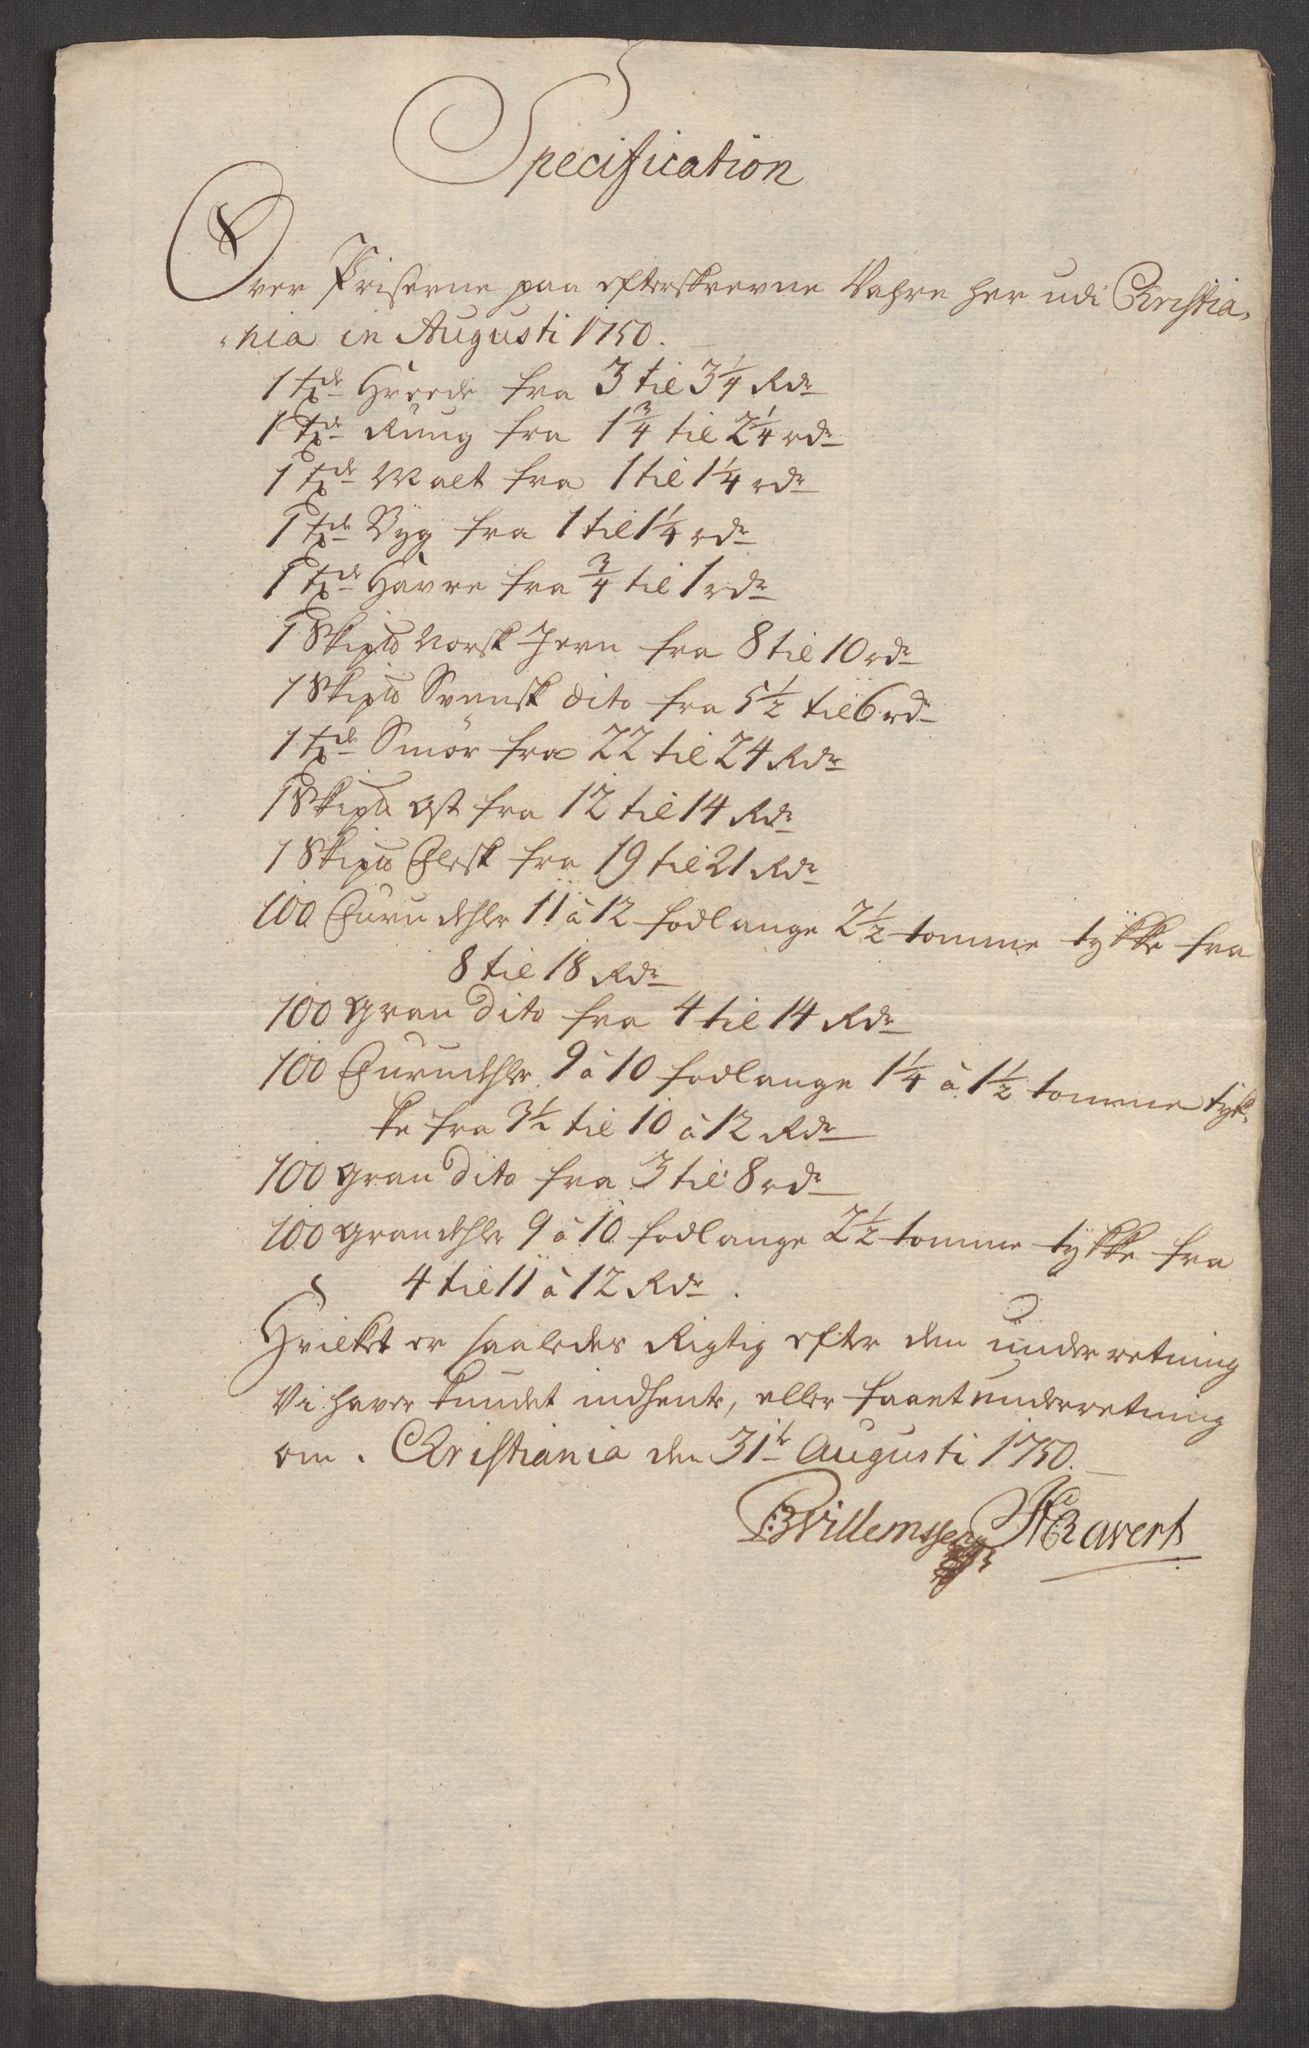 Specification
Over Priserne paa efterskrevne Vahre her udi Christia-
-nia in Augusti 1750.
1 tde Hvede fra 3 til 3¼ Rdr
1 tde Rüug fra 1¾ til 2¼ rdr
1 tde Malt fra 1 til 1¼ rdr
1 tde Byg fra 1 til 1¼ rdr
1 tde Havre fra ¾ til 1 rdr
1 Skipd Norsk Jern fra 8 til 10 rdr
1 Skipd Svensk dito fra 5½ til 6 rdr
1 tde Smør fra 22 til 24 Rdr
1 Skipd Ost fra 12 til 14 Rdr
1 Skipd Flesk fra 19 til 21 Rdr
100 Furu dehler 11 à 12 fodlange 2½ tomme tykke fra
8 til 18 Rdr
100 Gran dito fra 4 til 14 Rdr
100 Furudehler 9 à 10 fodlange 1¼ à 1½ tomme tyk-
ke fra 3½ til 10 à 12 Rdr
100 Gran dito fra 3 til 8 rdr
100 Grandehler 9 à 10 fodlange 2½ tomme tykke fra
4 til 11 à 12 Rdr.
Hvilket er saaledes Rigtig efter den underretning
Vi haver kundet indhente, eller faaet underretning
om. Christiania den 31te Augusti 1750.
Willemssen Ravert